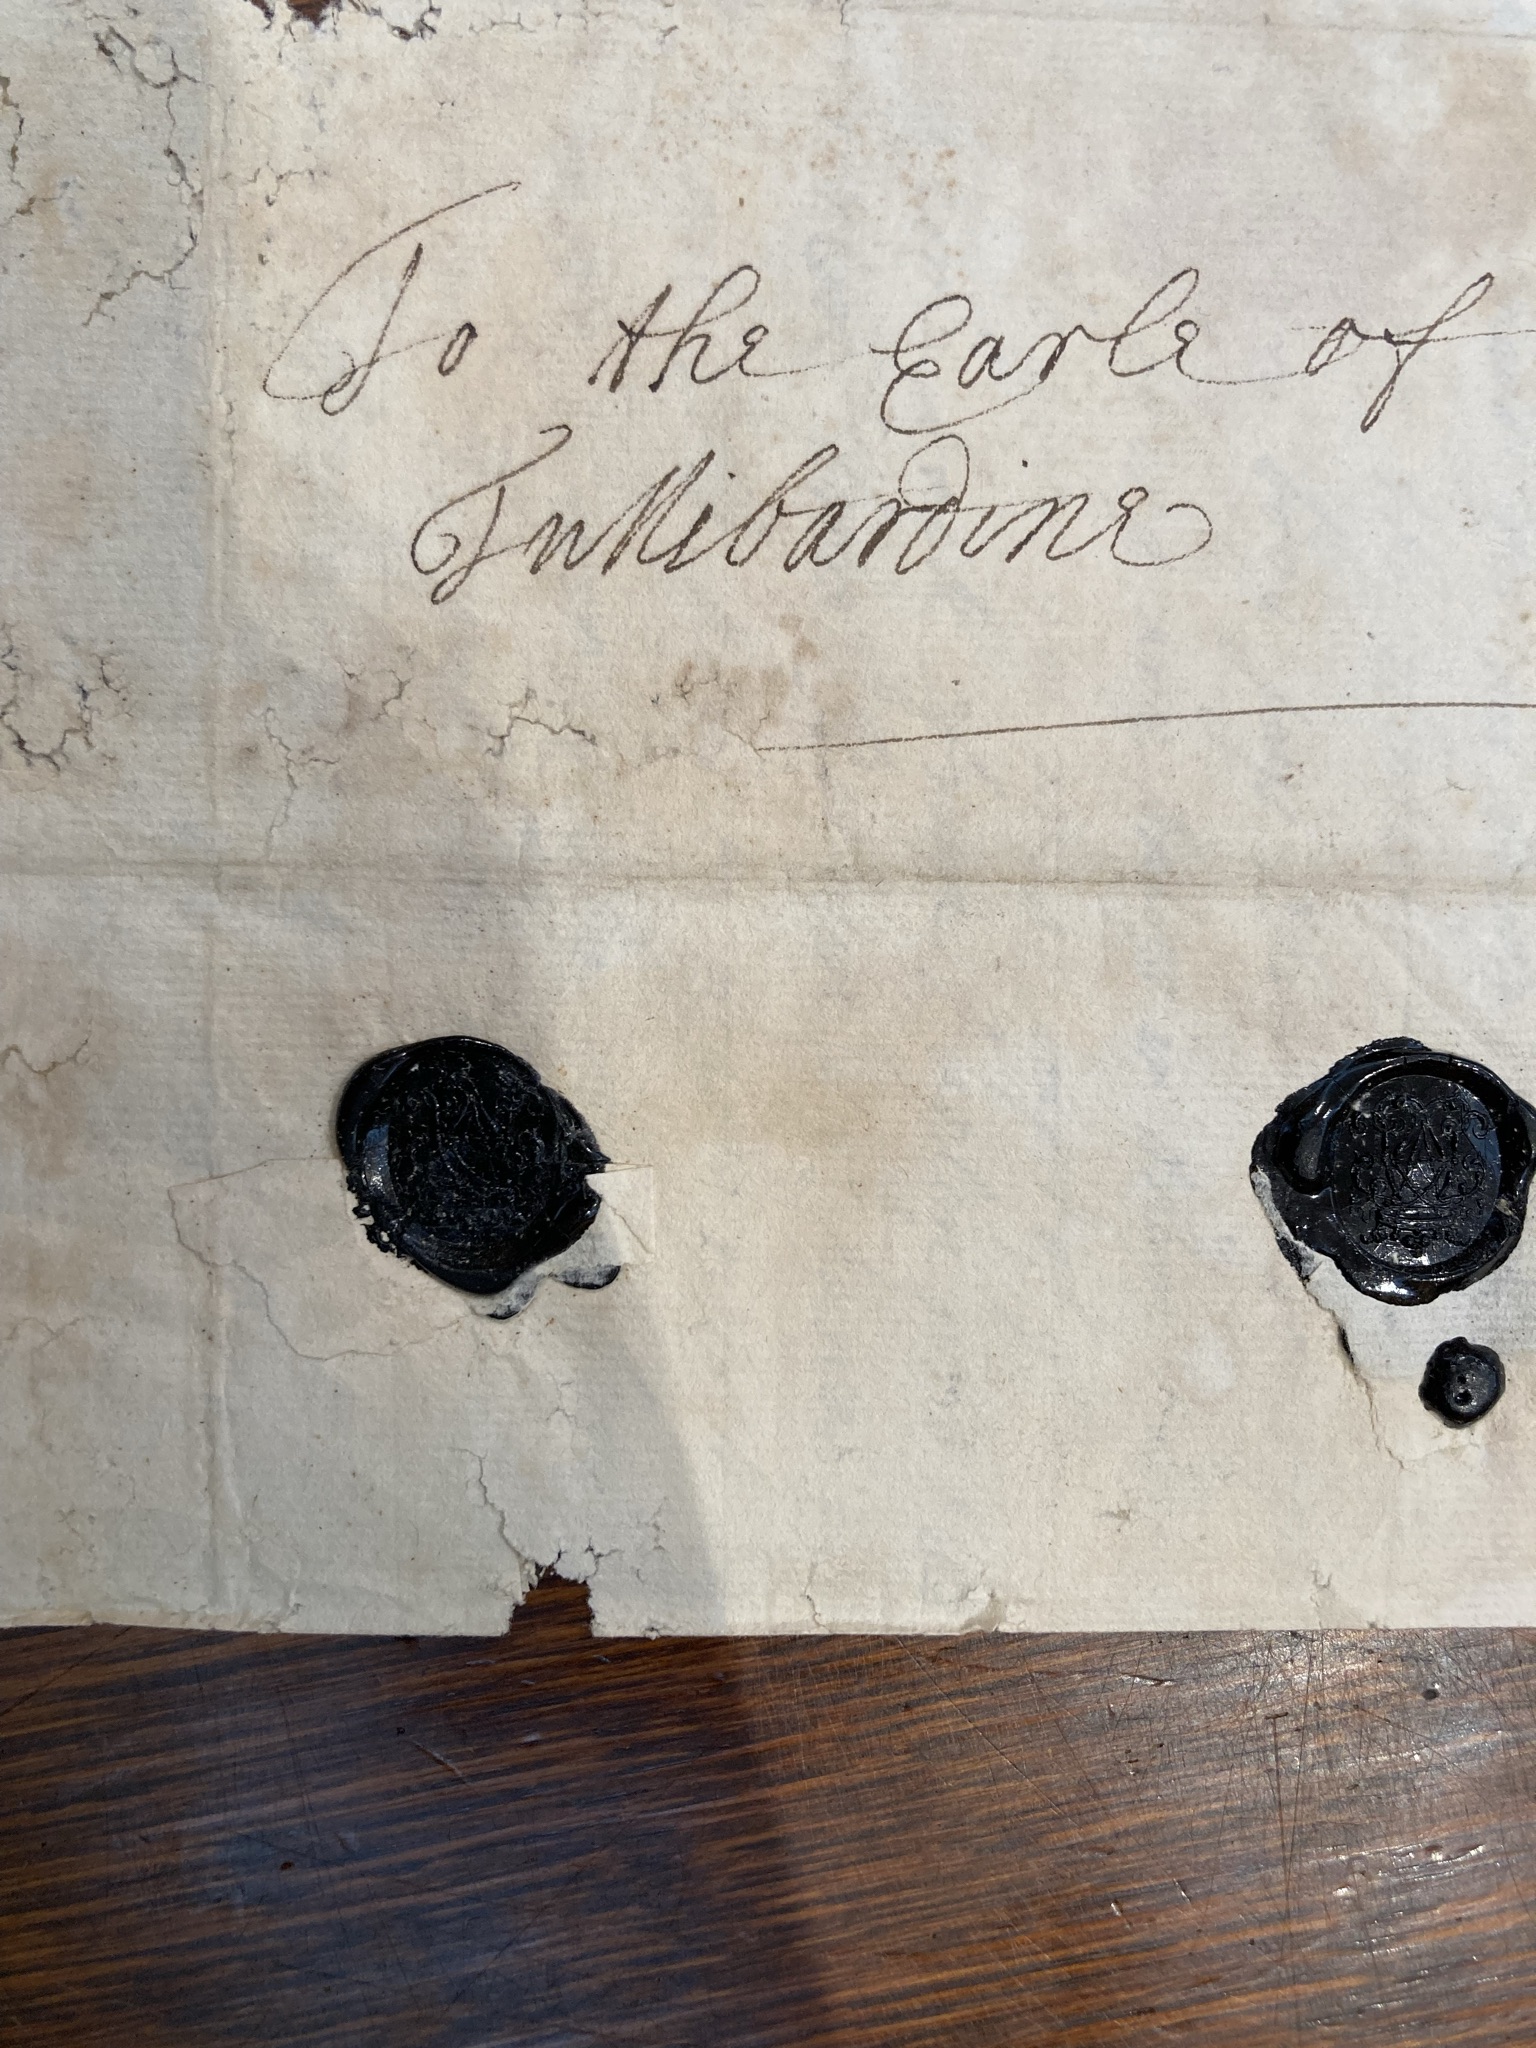 To the Earle of
Tullibardine